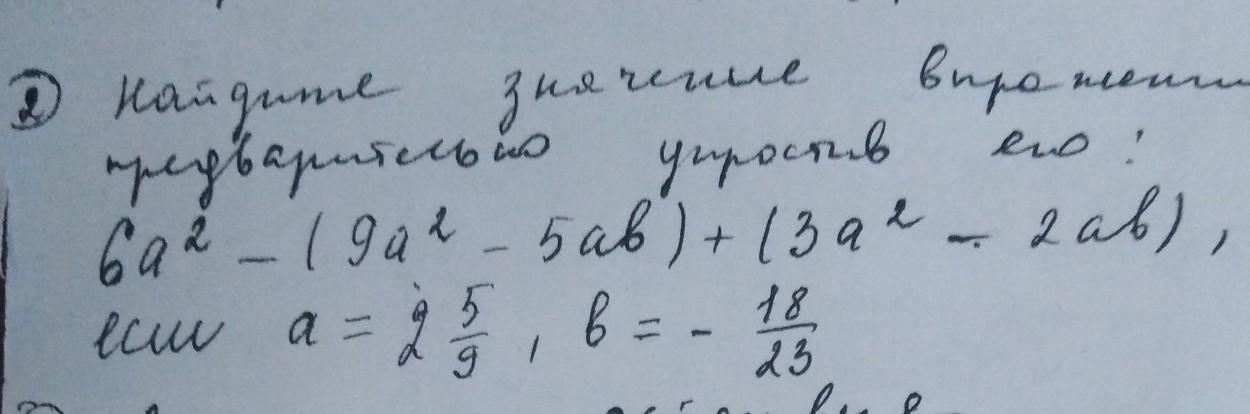 ② Найдите значение выражени
предварительно упростив его:
6a² - (9a² - 5ab) + (3a² - 2ab),
если a = 2 5/9, b = - 18/23